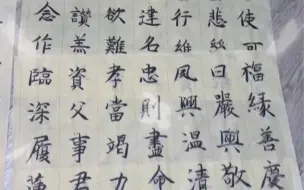 使可福緣善慶
悲絲曰嚴與敬
行維夙興温清
建名忠則盡命
欲難孝當竭力
讚羔資父事君
念作臨深履薄